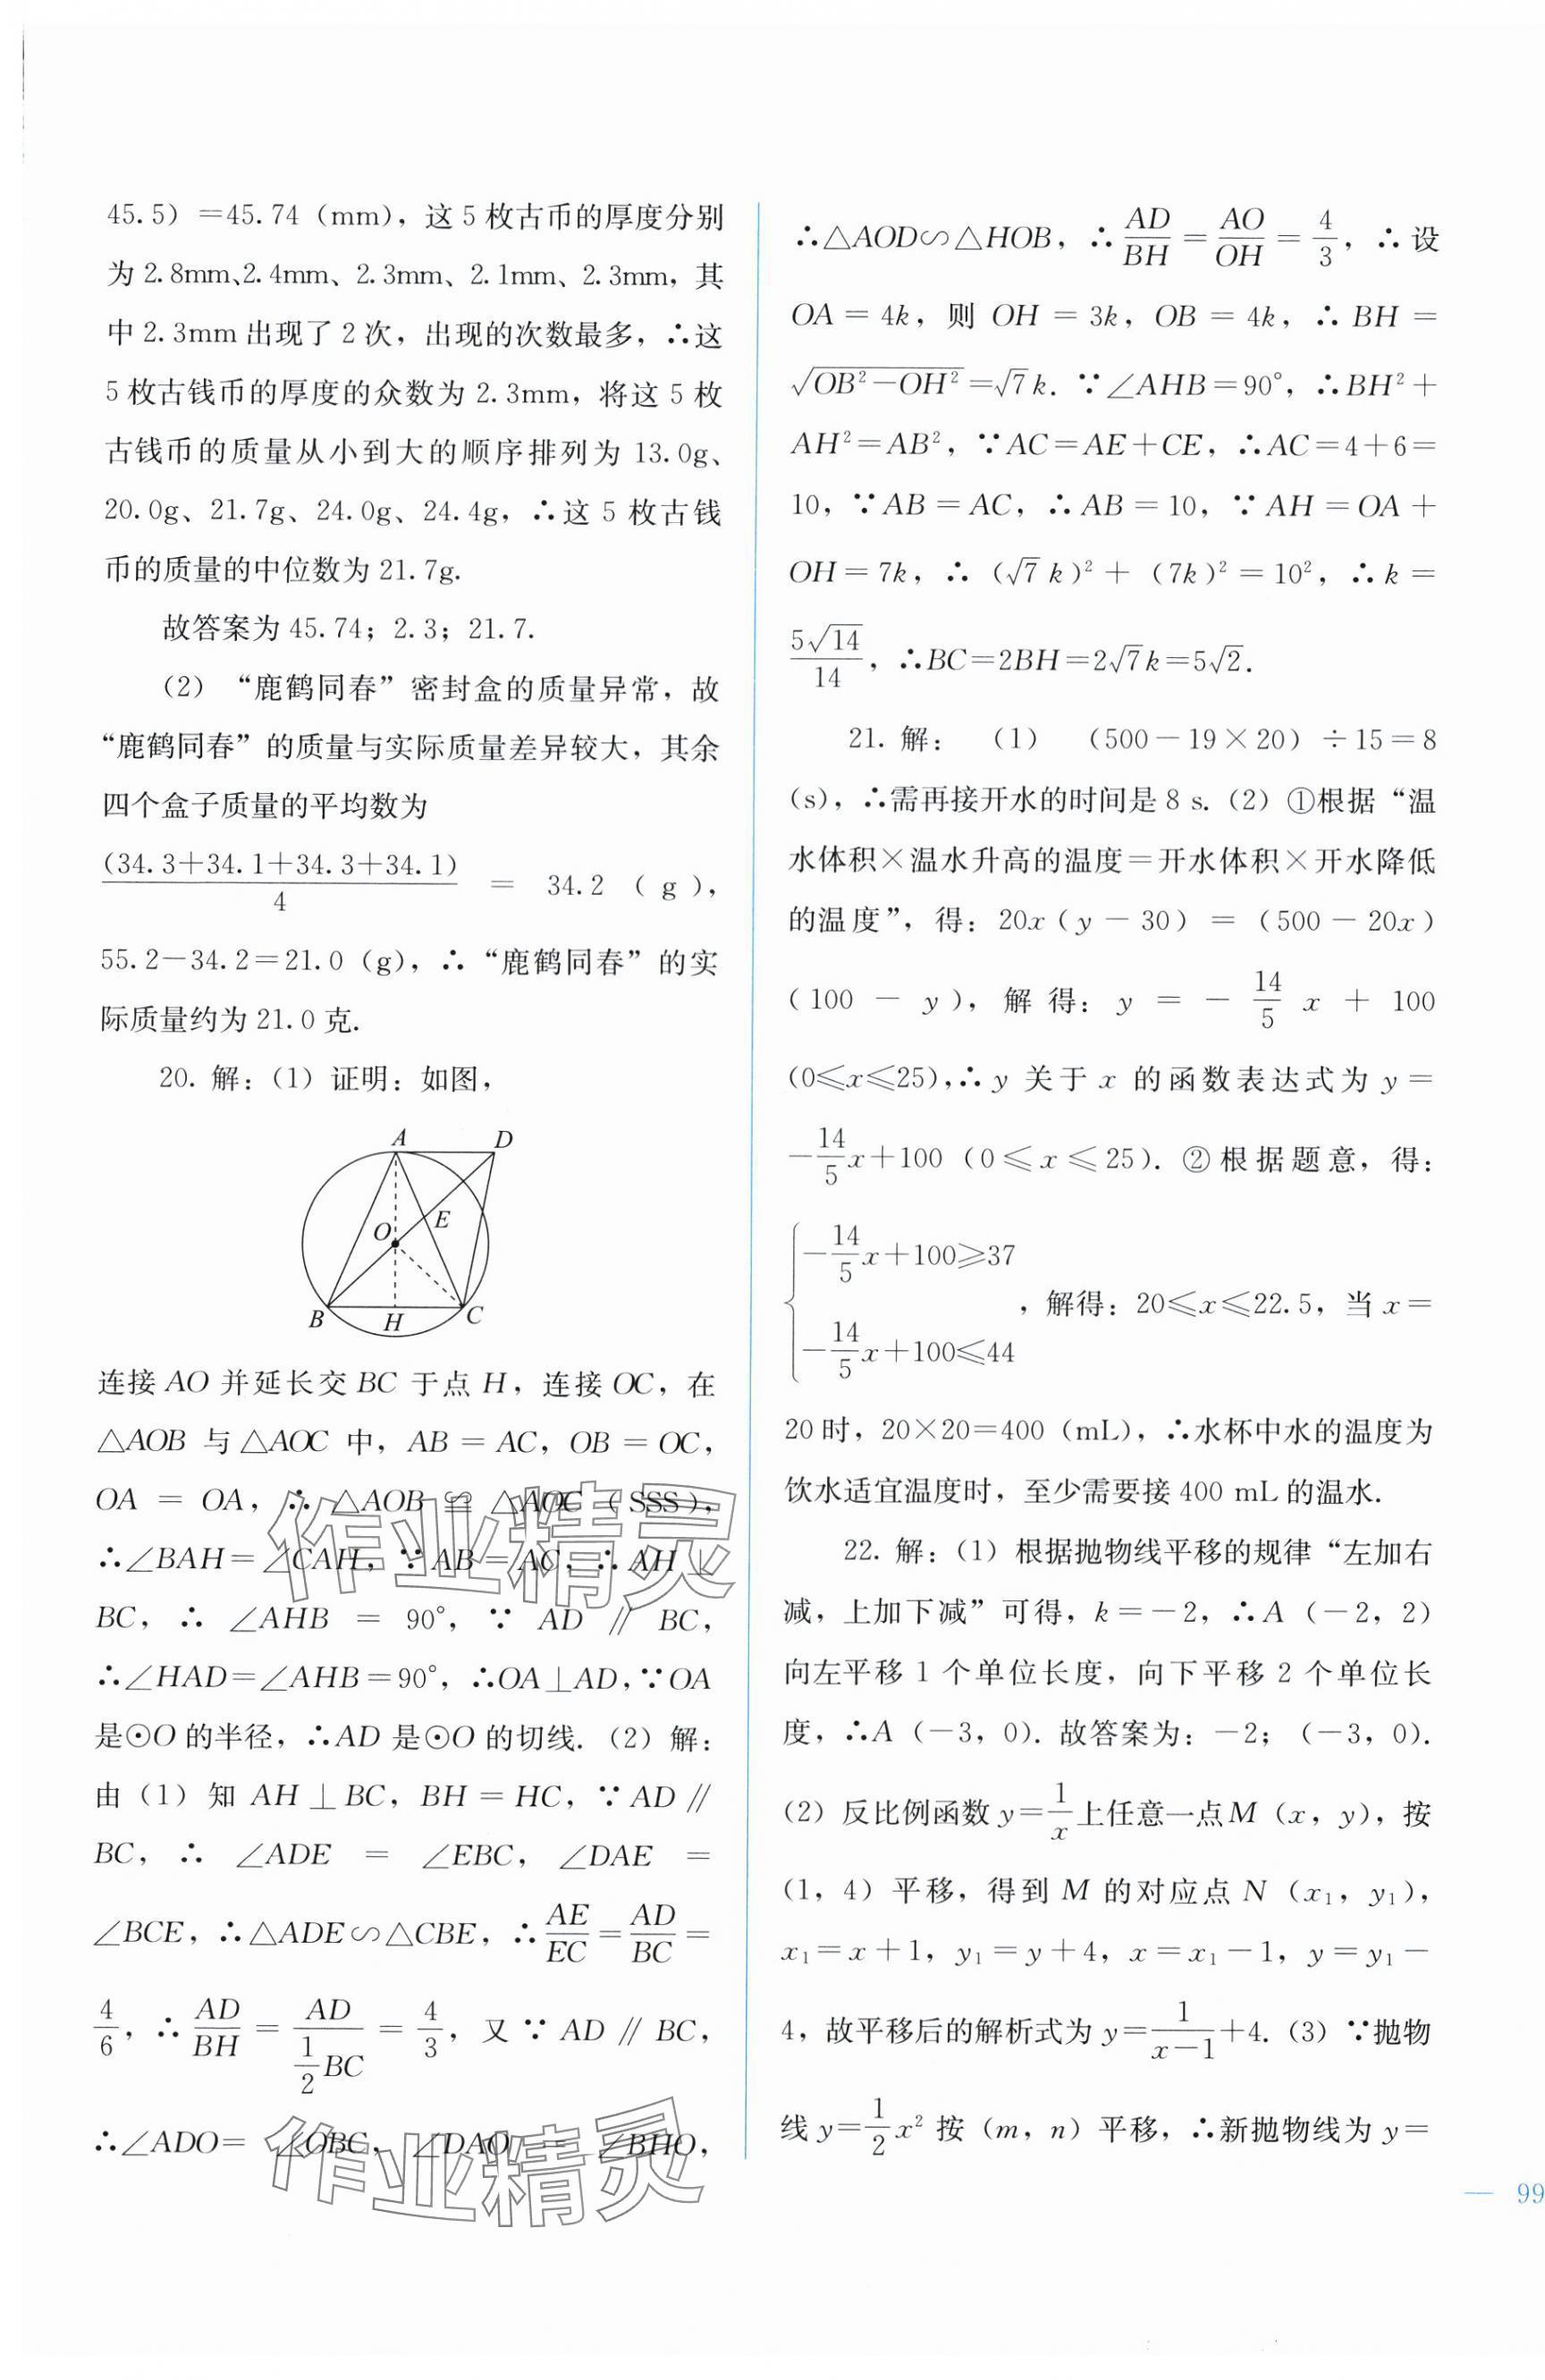 45.5）=45.74（mm），这5枚古币的厚度分别
为2.8mm、2.4mm、2.3mm、2.1mm、2.3mm，其
中2.3mm出现了2次，出现的次数最多，∴这
5枚古钱币的厚度的众数为2.3mm，将这5枚
古钱币的质量从小到大的顺序排列为13.0g、
20.0g、21.7g、24.0g、24.4g，∴这5枚古钱
币的质量的中位数为21.7g.
故答案为45.74；2.3；21.7.
（2）“鹿鹤同春”密封盒的质量异常，故
“鹿鹤同春”的质量与实际质量差异较大，其余
四个盒子质量的平均数为
(34.3+34.1+34.3+34.1)/4 = 34.2（g），
55.2−34.2=21.0（g），∴“鹿鹤同春”的实
际质量约为21.0克.
20. 解：（1）证明：如图，
A D
O E
B H C
连接AO并延长交BC于点H，连接OC，在
△AOB与△AOC中，AB=AC，OB=OC，
OA=OA，∴△AOB≌△AOC（SSS），
∴∠BAH=∠CAH，∵AB=AC，∴AH⊥
BC，∴∠AHB=90°，∵AD∥BC，
∴∠HAD=∠AHB=90°，∴OA⊥AD，∵OA
是⊙O的半径，∴AD是⊙O的切线.（2）解：
由（1）知AH⊥BC，BH=HC，∵AD∥
BC，∴∠ADE=∠EBC，∠DAE=
∠BCE，∴△ADE∽△CBE，∴AE/EC=AD/BC=
4/6，∴AD/BH=AD/(1/2 BC)=4/3，又∵AD∥BC，
∴∠ADO=∠OBC，∠DAO=∠BHO，
∴△AOD∽△HOB，∴AD/BH=AO/OH=4/3，∴设
OA=4k，则OH=3k，OB=4k，∴BH=
√(OB²−OH²)=√7k. ∵∠AHB=90°，∴BH²+
AH²=AB²，∵AC=AE+CE，∴AC=4+6=
10，∵AB=AC，∴AB=10，∵AH=OA+
OH=7k，∴（√7k）²+（7k）²=10²，∴k=
5√14/14，∴BC=2BH=2√7k=5√2.
21. 解：（1）（500−19×20）÷15=8
（s），∴需再接开水的时间是8 s.（2）①根据“温
水体积×温水升高的温度=开水体积×开水降低
的温度”，得：20x（y−30）=（500−20x）
（100−y），解得：y=−14/5 x+100
（0≤x≤25），∴y关于x的函数表达式为y=
−14/5 x+100（0≤x≤25）. ②根据题意，得：
{−14/5 x+100≥37
，解得：20≤x≤22.5，当x=
−14/5 x+100≤44
20时，20×20=400（mL），∴水杯中水的温度为
饮水适宜温度时，至少需要接400 mL的温水.
22. 解：（1）根据抛物线平移的规律“左加右
减，上加下减”可得，k=−2，∴A（−2，2）
向左平移1个单位长度，向下平移2个单位长
度，∴A（−3，0）. 故答案为：−2；（−3，0）.
（2）反比例函数y=1/x上任意一点M（x，y），按
（1，4）平移，得到M的对应点N（x₁，y₁），
x₁=x+1，y₁=y+4，x=x₁−1，y=y₁−
4，故平移后的解析式为y=1/(x−1)+4.（3）∵抛物
线y=1/2 x²按（m，n）平移，∴新抛物线为y=
— 99
作业精灵
作业精灵